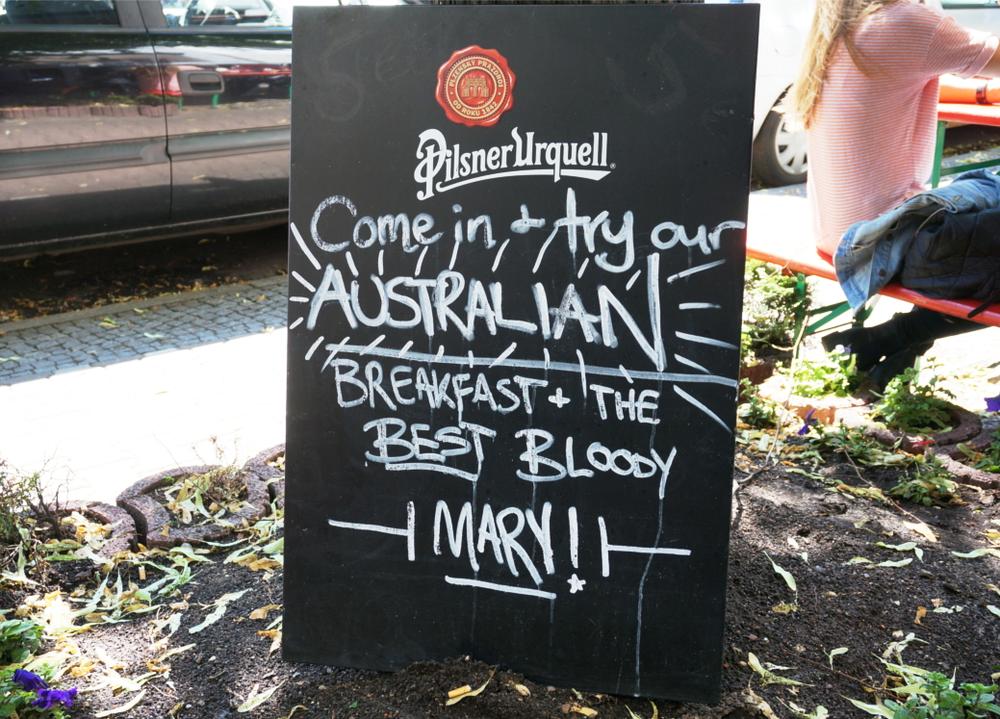 PLZEŇSKÝ PRAZDROJ
OD ROKU 1842
Pilsner Urquell
Come in + try our
AUSTRALIAN
BREAKFAST + THE
BEST BLOODY
MARY!